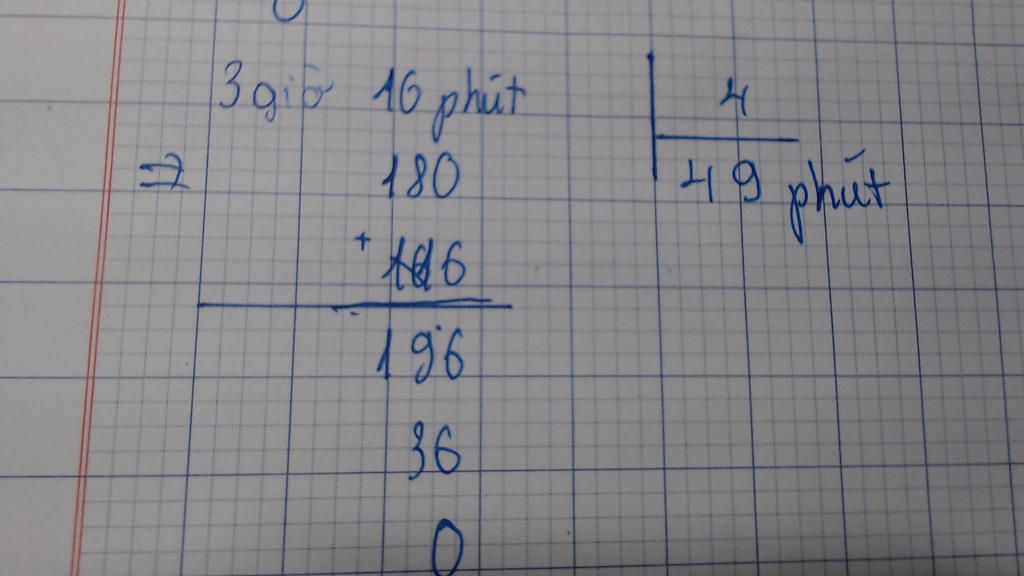 3 giờ 16 phút 4
=> 180 49 phút
+ 16
196
36
0